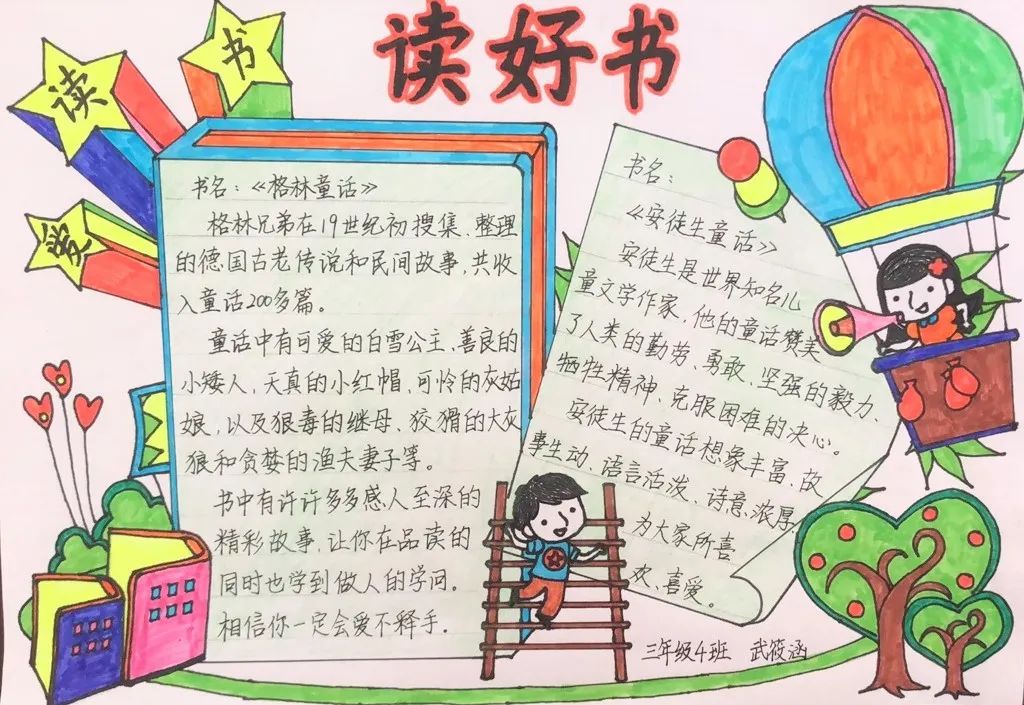 爱
读
书
读好书
书名：《格林童话》
格林兄弟在19世纪初搜集、整理
的德国古老传说和民间故事，共收
入童话200多篇。
童话中有可爱的白雪公主、善良的
小矮人，天真的小红帽，可怜的灰姑
娘，以及狠毒的继母、狡猾的大灰
狼和贪婪的渔夫妻子等。
书中有许许多多感人至深的
精彩故事，让你在品读的
同时也学到做人的学问。
相信你一定会爱不释手。
书名：
《安徒生童话》
安徒生是世界知名儿
童文学作家，他的童话赞美
了人类的勤劳、勇敢、坚强的毅力、
牺牲精神、克服困难的决心。
安徒生的童话想象丰富、故
事生动、语言活泼、诗意浓厚，
为大家所喜
欢、喜爱。
三年级4班 武筱涵